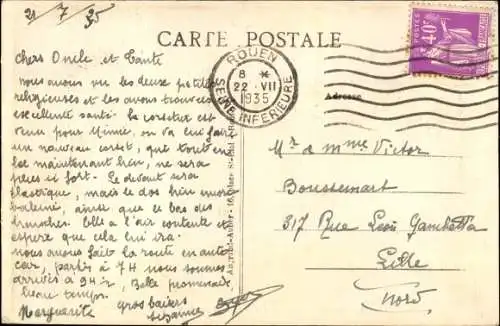 21/7/35
CARTE POSTALE
40c
POSTES
ROUEN
8 *
22 · VII
1935
SEINE INFERIEURE
Adresse
Chers Oncle et Tante
nous avons vu les deux petites
religieuses et les avons trouvées
excellente santé. La corsetière est
venue pour Mimie, on va lui faire
un nouveau corset, que tout en
le maintenant bien, ne sera
pas si fort. Le devant sera
élastique, mais le dos bien
baleiné, ainsi que le bas des
hanches. Elle a l'air contente et
espère que cela lui ira.
nous avons fait la route en auto
car, partis à 7H nous sommes
arrivés à 9H ½, Belle promenade,
beau temps.
gros baisers
Marguerite Suzanne
Mr & Mme Victor
Boussemart
317 Rue Léon Gambetta
Lille
Nord